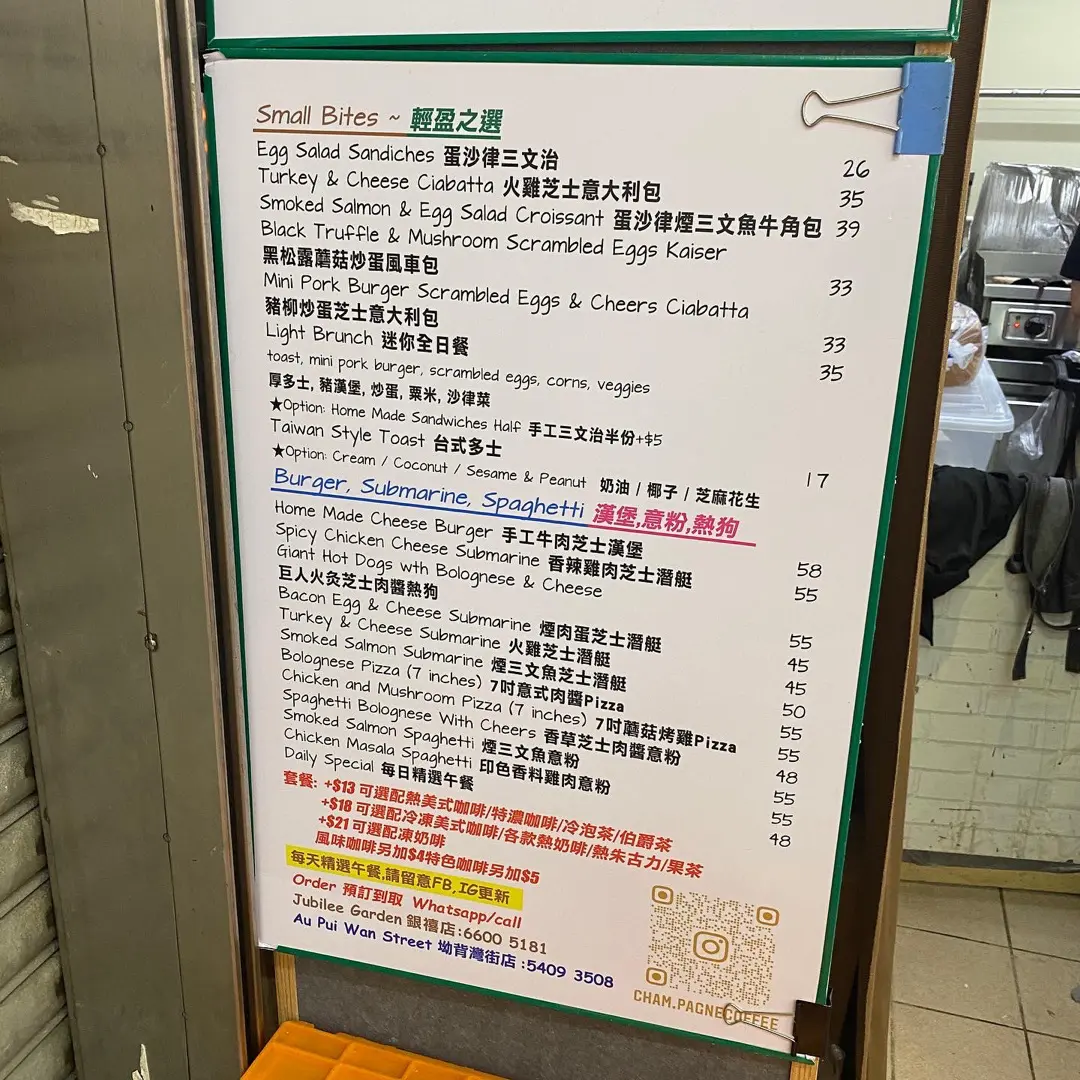 Small Bites ~ 輕盈之選
Egg Salad Sandiches 蛋沙律三文治 26
Turkey & Cheese Ciabatta 火雞芝士意大利包 35
Smoked Salmon & Egg Salad Croissant 蛋沙律煙三文魚牛角包 39
Black Truffle & Mushroom Scrambled Eggs Kaiser
黑松露蘑菇炒蛋風車包 33
Mini Pork Burger Scrambled Eggs & Cheers Ciabatta
豬柳炒蛋芝士意大利包 33
Light Brunch 迷你全日餐 35
toast, mini pork burger, scrambled eggs, corns, veggies
厚多士, 豬漢堡, 炒蛋, 粟米, 沙律菜
★Option: Home Made Sandwiches Half 手工三文治半份+$5
Taiwan Style Toast 台式多士 17
★Option: Cream / Coconut / Sesame & Peanut 奶油 / 椰子 / 芝麻花生
Burger, Submarine, Spaghetti 漢堡,意粉,熱狗
Home Made Cheese Burger 手工牛肉芝士漢堡 58
Spicy Chicken Cheese Submarine 香辣雞肉芝士潛艇 55
Giant Hot Dogs wth Bolognese & Cheese
巨人火灸芝士肉醬熱狗 55
Bacon Egg & Cheese Submarine 煙肉蛋芝士潛艇 45
Turkey & Cheese Submarine 火雞芝士潛艇 45
Smoked Salmon Submarine 煙三文魚芝士潛艇 50
Bolognese Pizza (7 inches) 7吋意式肉醬Pizza 55
Chicken and Mushroom Pizza (7 inches) 7吋蘑菇烤雞Pizza 55
Spaghetti Bolognese With Cheers 香草芝士肉醬意粉 48
Smoked Salmon Spaghetti 煙三文魚意粉 55
Chicken Masala Spaghetti 印色香料雞肉意粉 55
Daily Special 每日精選午餐 48
套餐: +$13 可選配熱美式咖啡/特濃咖啡/冷泡茶/伯爵茶
+$18 可選配冷凍美式咖啡/各款熱奶啡/熱朱古力/果茶
+$21 可選配凍奶啡
風味咖啡另加$4特色咖啡另加$5
每天精選午餐,請留意FB,IG更新
Order 預訂到取 Whatsapp/call
Jubilee Garden 銀禧店:6600 5181
Au Pui Wan Street 坳背灣街店:5409 3508
CHAM.PAGNECOFFEE